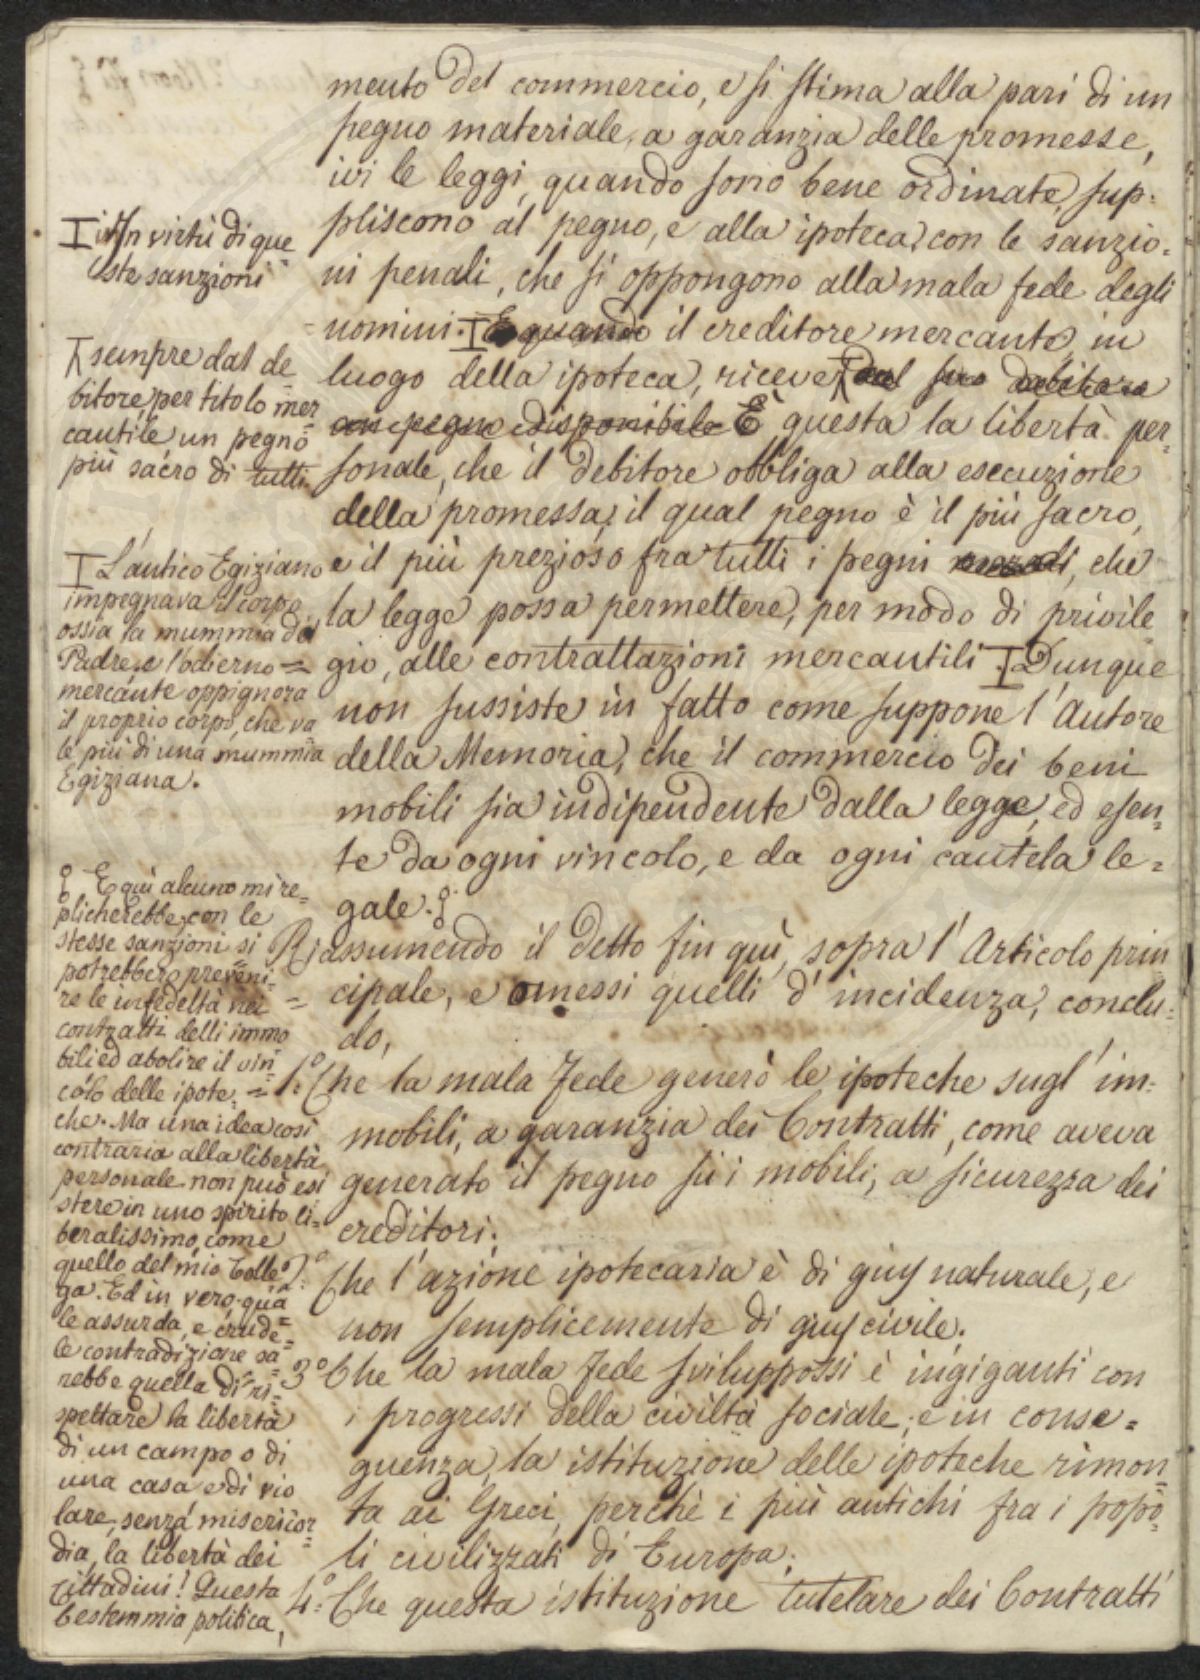 mento del commercio, e si stima alla pari di un
pegno materiale, a garanzia delle promesse,
ivi le leggi, quando sono bene ordinate, sup-
pliscono al pegno, e alla ipoteca, con le sanzio-
ni penali, che si oppongono alla mala fede degli
uomini. E quando il creditore mercante, in
luogo della ipoteca, riceve dal suo debitore
un pegno disponibile È questa la libertà per-
sonale, che il debitore obbliga alla esecuzione
della promessa, il qual pegno è il più sacro,
e il più prezioso fra tutti i pegni che
la legge possa permettere, per modo di privile-
gio, alle contrattazioni mercantili. Dunque
non sussiste in fatto come suppone l'Autore
della Memoria, che il commercio dei beni
mobili sia indipendente dalla legge, ed esen-
te da ogni vincolo, e da ogni cautela le=
gale.
Riassumendo il detto fin quì, sopra l'Articolo prin
cipale, e omessi quelli d'incidenza, conclu-
do,
1.° Che la mala fede generò le ipoteche sugl'im-
mobili, a garanzia dei Contratti, come aveva
generato il pegno sù i mobili, a sicurezza dei
creditori.
2.° Che l'azione ipotecaria è di gius naturale, e
non semplicemente di gius civile.
3.° Che la mala fede sviluppossi è ingiganti con
i progressi della civiltà sociale, e in conse=
guenza, la istituzione delle ipoteche rimon-
ta ai Greci, perchè i più antichi fra i popo-
li civilizzati di Europa.
4.° Che questa istituzione tutelare dei Contratti
In virtù di que
ste sanzioni
sempre dal de-
bitore, per titolo mer
cantile un pegno
più sacro di tutti.
L'antico Egiziano
impegnava il corpo
ossia la mummia del
Padre, e l'odierno =
mercante oppignora
il proprio corpo, che va
le più di una mummia
Egiziana.
E quì alcuno mi re-
plicherebbe, con le
stesse sanzioni si
potrebbero preveni-
re le infedeltà nei =
contratti delli immo
bili ed abolire il vin-
colo delle ipote- =
che. Ma una idea così
contraria alla libertà
personale non può esi
stere in uno spirito li-
beralissimo, come
quello del mio Colle-
ga. Ed in vero, qua
le assurda, e crude-
le contradizione sa-
rebbe quella di ri-
spettare la libertà
di un campo o di
una casa e di vio
lare, senza misericor-
dia, la libertà dei
Cittadini! Questa
bestemmia politica,